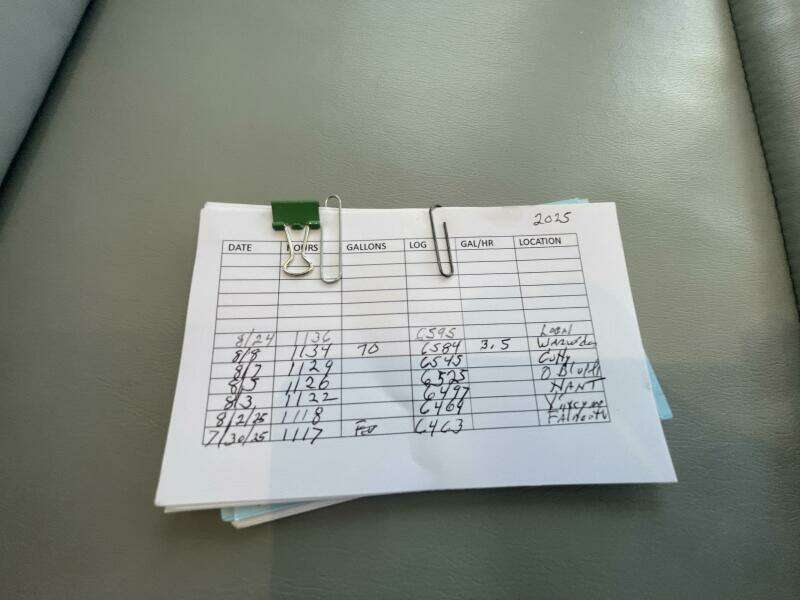 2025
DATE HOURS GALLONS LOG GAL/HR LOCATION
8/24 1136 6595 Local
8/8 1134 70 6584 3.5
8/7 1129 6545 Cutty
8/5 1126 6525 O Bluffs
8/3 1122 6497 NANT
8/2/25 1118 6464
7/30/25 1117 6463